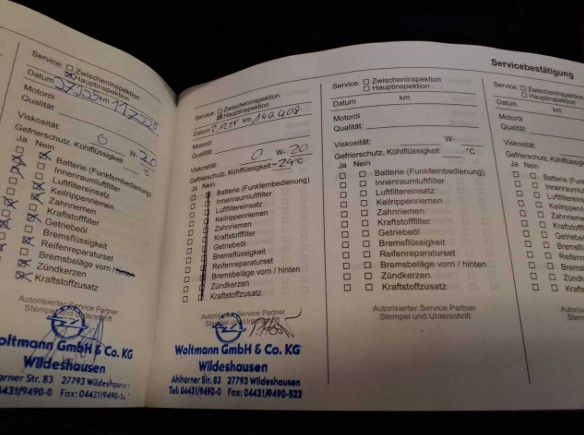 Servicebestätigung
Service: Zwischeninspektion
Hauptinspektion
Datum km 117.228
Motoröl
Qualität:
Viskosität: 0 W- 20
Gefrierschutz, Kühlflüssigkeit °C
Ja Nein
Batterie (Funkfernbedienung)
Innenraumluftfilter
Luftfiltereinsatz
Keilrippenriemen
Zahnriemen
Kraftstofffilter
Getriebeöl
Bremsflüssigkeit
Reifenreparaturset
Bremsbeläge vorn / hinten
Zündkerzen
Kraftstoffzusatz
Autorisierter Service Partner
Stempel und Unterschrift
Woltmann GmbH & Co. KG
Wildeshausen
Ahlhorner Str. 83 27793 Wildeshausen
04431/9490-0 Fax: 04431/9490-522
Service: Zwischeninspektion
Hauptinspektion
Datum km 140.408
Motoröl
Qualität:
Viskosität: 0 W- 20
Gefrierschutz, Kühlflüssigkeit -24°C
Ja Nein
Batterie (Funkfernbedienung)
Innenraumluftfilter
Luftfiltereinsatz
Keilrippenriemen
Zahnriemen
Kraftstofffilter
Getriebeöl
Bremsflüssigkeit
Reifenreparaturset
Bremsbeläge vorn / hinten
Zündkerzen
Kraftstoffzusatz
Autorisierter Service Partner
Stempel und Unterschrift
Woltmann GmbH & Co. KG
Wildeshausen
Ahlhorner Str. 83 27793 Wildeshausen
Tel: 04431/9490-0 Fax: 04431/9490-522
Service: Zwischeninspektion
Hauptinspektion
Datum km
Motoröl
Qualität:
Viskosität: W-
Gefrierschutz, Kühlflüssigkeit °C
Ja Nein
Batterie (Funkfernbedienung)
Innenraumluftfilter
Luftfiltereinsatz
Keilrippenriemen
Zahnriemen
Kraftstofffilter
Getriebeöl
Bremsflüssigkeit
Reifenreparaturset
Bremsbeläge vorn / hinten
Zündkerzen
Kraftstoffzusatz
Autorisierter Service Partner
Stempel und Unterschrift
Service: Zwischeninspektion
Hauptinspektion
Datum km
Motoröl
Qualität:
Viskosität:
Gefrierschutz, Kühlflüssigkeit
Ja Nein
Batterie (Funkfernbedienung)
Innenraumluftfilter
Luftfiltereinsatz
Keilrippenriemen
Zahnriemen
Kraftstofffilter
Getriebeöl
Bremsflüssigkeit
Autorisierter